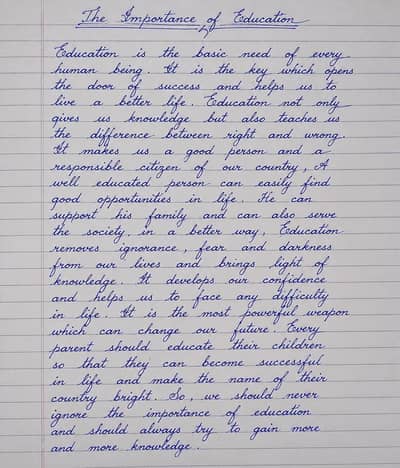 The Importance of Education
Education is the basic need of every
human being. It is the key which opens
the door of success and helps us to
live a better life. Education not only
gives us knowledge but also teaches us
the difference between right and wrong.
It makes us a good person and a
responsible citizen of our country, A
well educated person can easily find
good opportunities in life. He can
support his family and can also serve
the society, in a better way, Education
removes ignorance, fear and darkness
from our lives and brings light of
knowledge. It develops our confidence
and helps us to face any difficulty
in life. It is the most powerful weapon
which can change our future. Every
parent should educate their children
so that they can become successful
in life and make the name of their
country bright. So, we should never
ignore the importance of education
and should always try to gain more
and more knowledge.